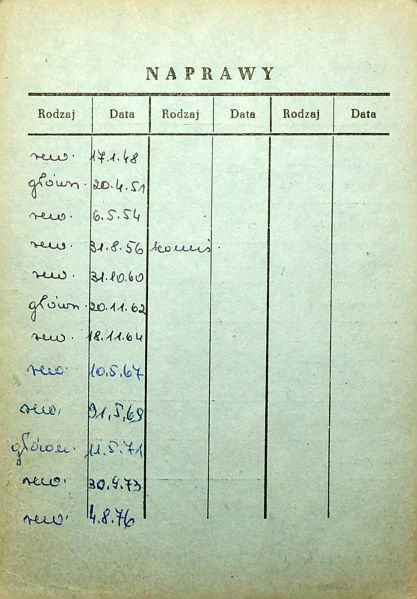 NAPRAWY
Rodzaj Data Rodzaj Data Rodzaj Data
rew. 17.1.48
główn. 20.4.51
rew. 6.5.54
rew. 31.8.56
rew. 31.10.60
główn. 20.11.62
rew. 18.11.64
rew. 10.5.67
rew. 31.5.69
główn. 11.5.71
rew. 30.9.73
rew. 4.8.76